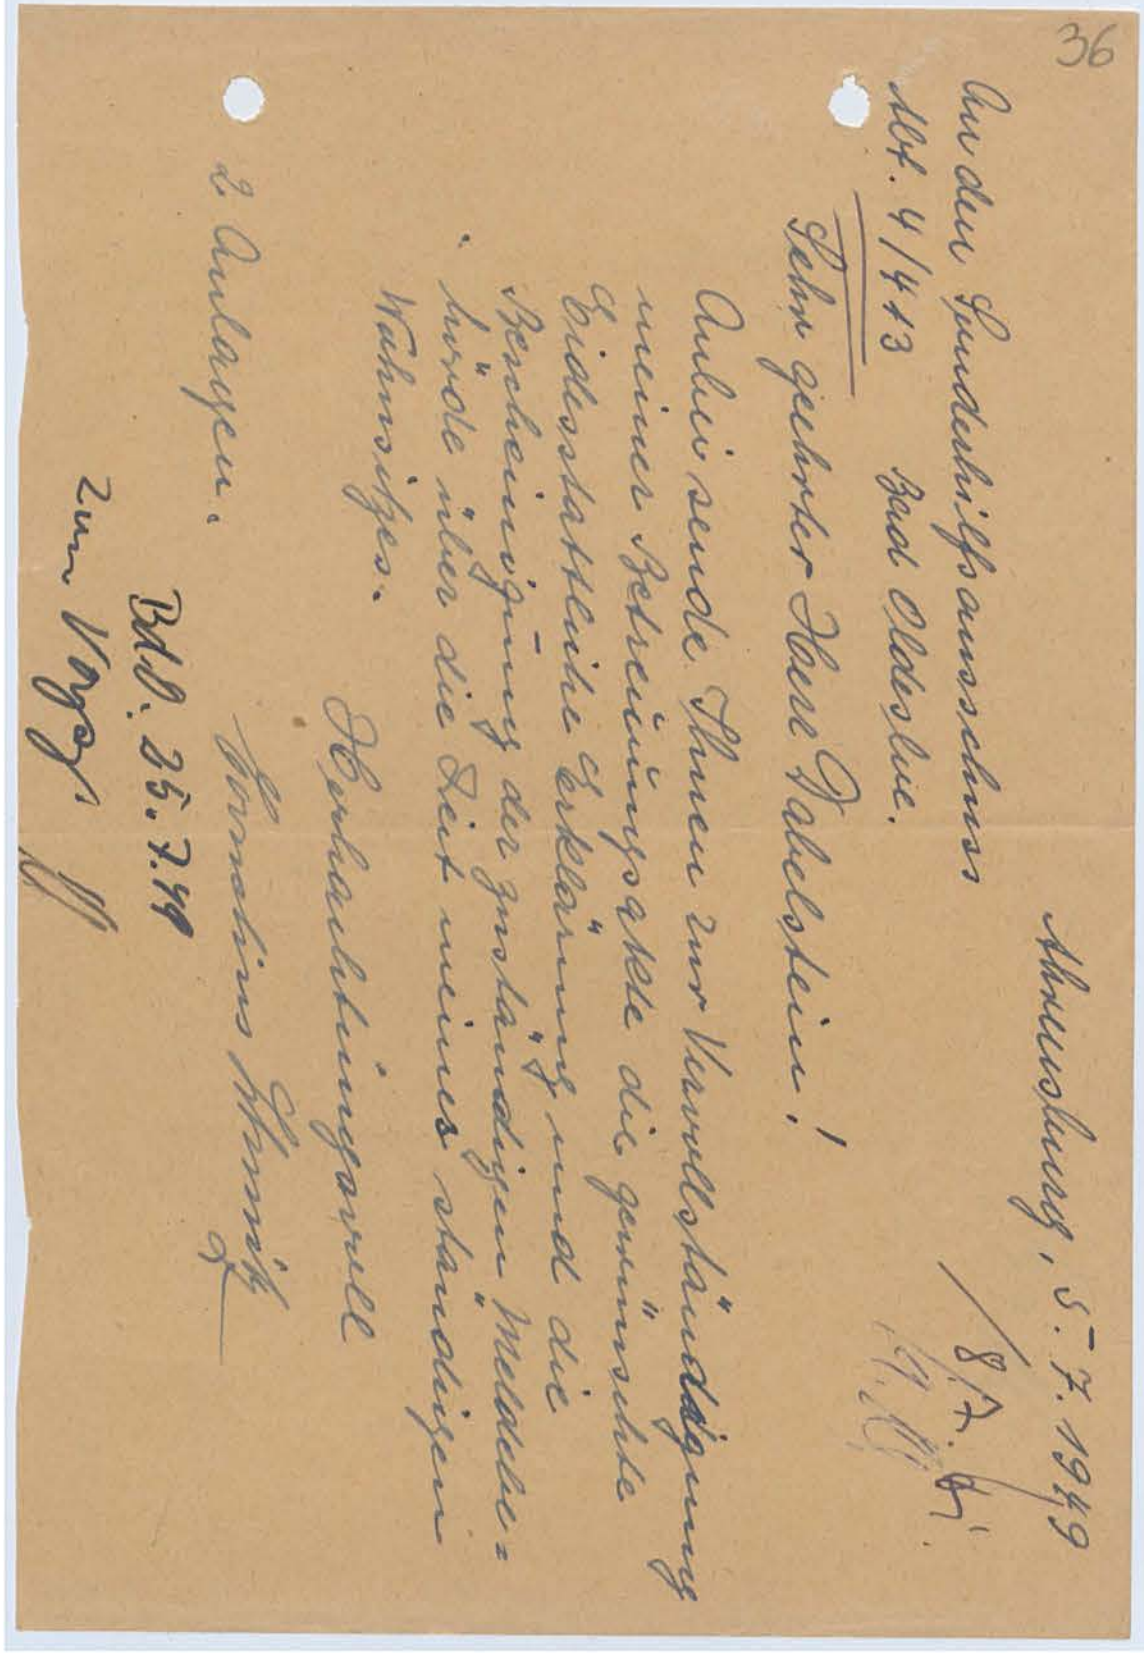 36
Ahrensburg, 5.7.1949
An den Sonderhilfsausschuss
Abt. 4/413 Bad Oldesloe.
/8/7.
Sehr geehrter Herr Dabelstein!
Anbei sende Ihnen zur Vervollständigung
meiner Betreüungsakte die gewünschte
Eidesstattliche Erklärung und die
Bescheinigüng der zuständigen Meldebe=
hörde über die Zeit meines ständigen
Wohnsitzes.
Hochachtüngsvoll
Cornelius
2 Anlagen.
BdO. 25.7.49
zum Vorg.